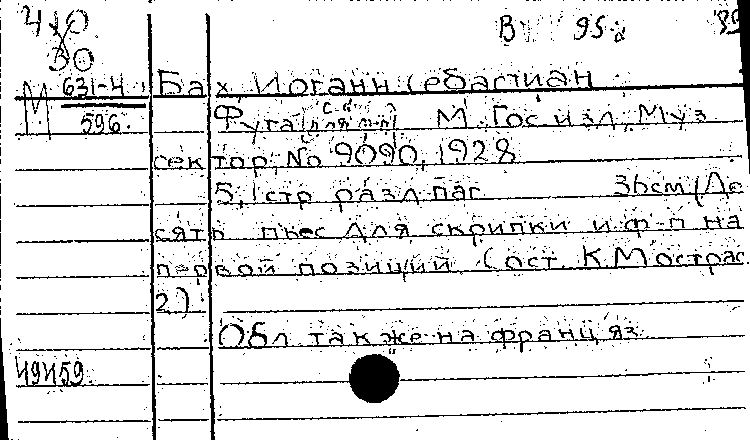 410
30
В 95
М 631-4 Бах, Иоганн Себастиан
596. Фуга М., Гос. изд., Муз.
сектор, No 9090, 1928
5, 1 стр разд паг 36см (Де
сять пьес для скрипки и ф-п на
первой позиции Сост. К Мострас
2)
Обл также на франц яз
49459